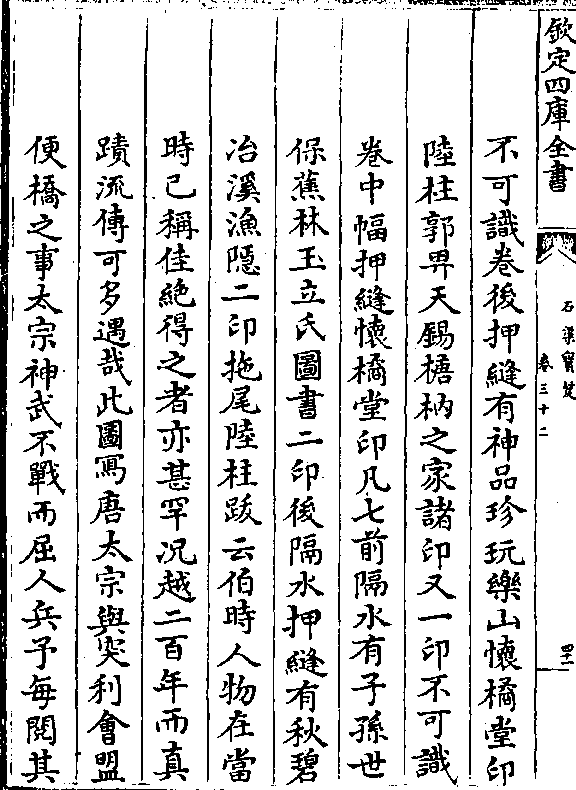 欽定四庫全書
石渠寶笈
卷三十二
四十一
不可識卷後押縫有神品珍玩樂山懷橘堂印
陸柱郭畀天錫橲枘之家諸印又一印不可識
卷中幅押縫懷橘堂印凡七前隔水有子孫世
保蕉林玉立氏圖書二印後隔水押縫有秋碧
冶溪漁隱二印拖尾陸柱跋云伯時人物在當
時已稱佳絶得之者亦甚罕况越二百年而真
蹟流傳可多遇哉此圖寫唐太宗與突利會盟
便橋之事太宗神武不戰而屈人兵予毎閱其